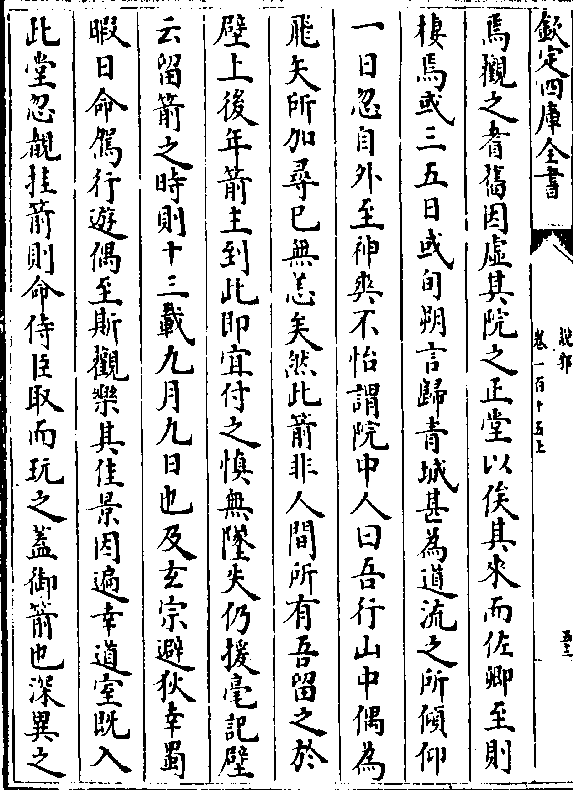 欽定四庫全書
說郛
卷一百十五上
五十二
焉觀之耆舊因虛其院之正堂以俟其來而佐卿至則
棲焉或三五日或旬朔言歸青城甚為道流之所傾仰
一日忽自外至神爽不怡謂院中人曰吾行山中偶為
飛矢所加尋已無恙矣然此箭非人間所有吾留之於
壁上後年箭主到此即宜付之慎無墜失仍援毫記壁
云留箭之時則十三載九月九日也及玄宗避狄幸蜀
暇日命駕行遊偶至斯觀樂其佳景因遍幸道室既入
此堂忽覩挂箭則命侍臣取而玩之蓋御箭也深異之